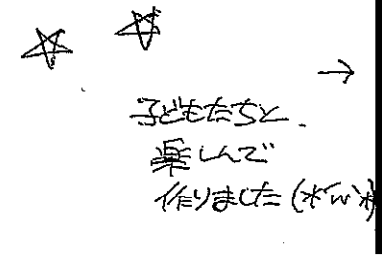 →
子どもたちと
楽しんで
作りました(*^^*)